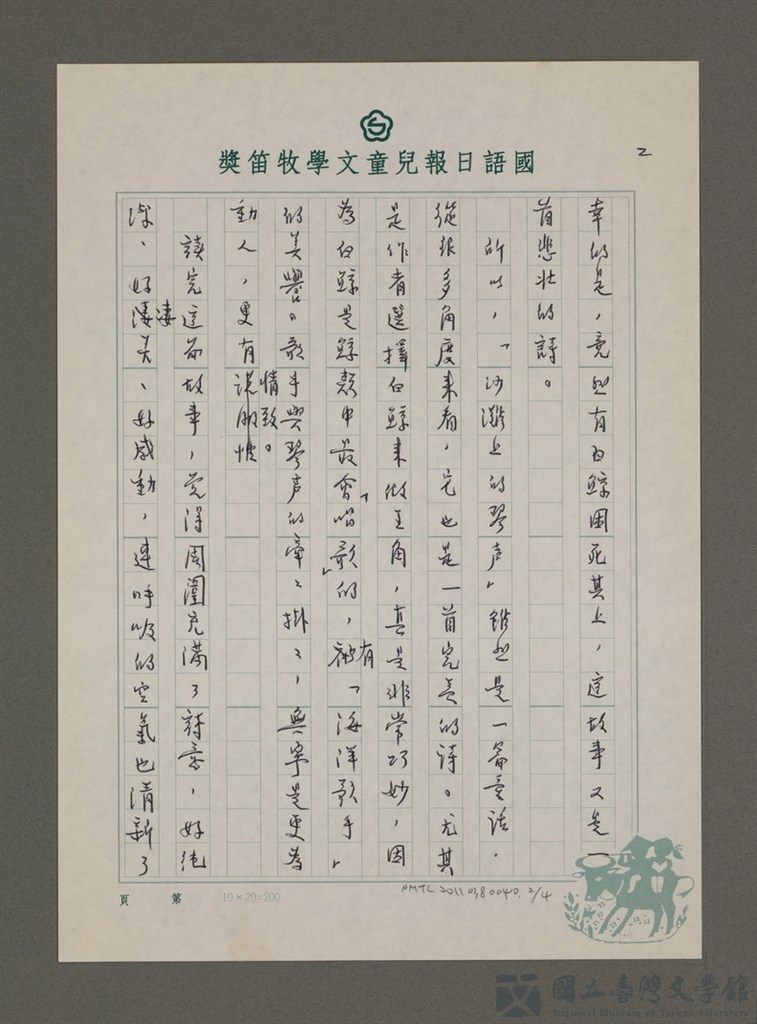 國語日報兒童文學牧笛獎
2
幸的是，竟然有白鯨困死其上，這故事又是一
首悲壯的詩。
所以，「沙灘上的琴声」雖然是一篇童話，
從很多角度來看，它也是一首完美的詩。尤其
是作者選擇白鯨來做主角，真是非常巧妙，因
為白鯨是鯨類中最會「唱歌」的，有「海洋歌手」
的美譽。歌手與琴声的牽〻掛〻，無寧是更為
動人，更有情致。
讀完這篇故事，覺得周圍充滿了詩意，好純
潔、好淒美、好感動，連呼吸的空氣也清新了
第 頁
10×20=200
NMTL 2011 038 0040. 2/4
國立臺灣文學館
National Museum of Taiwan Literature